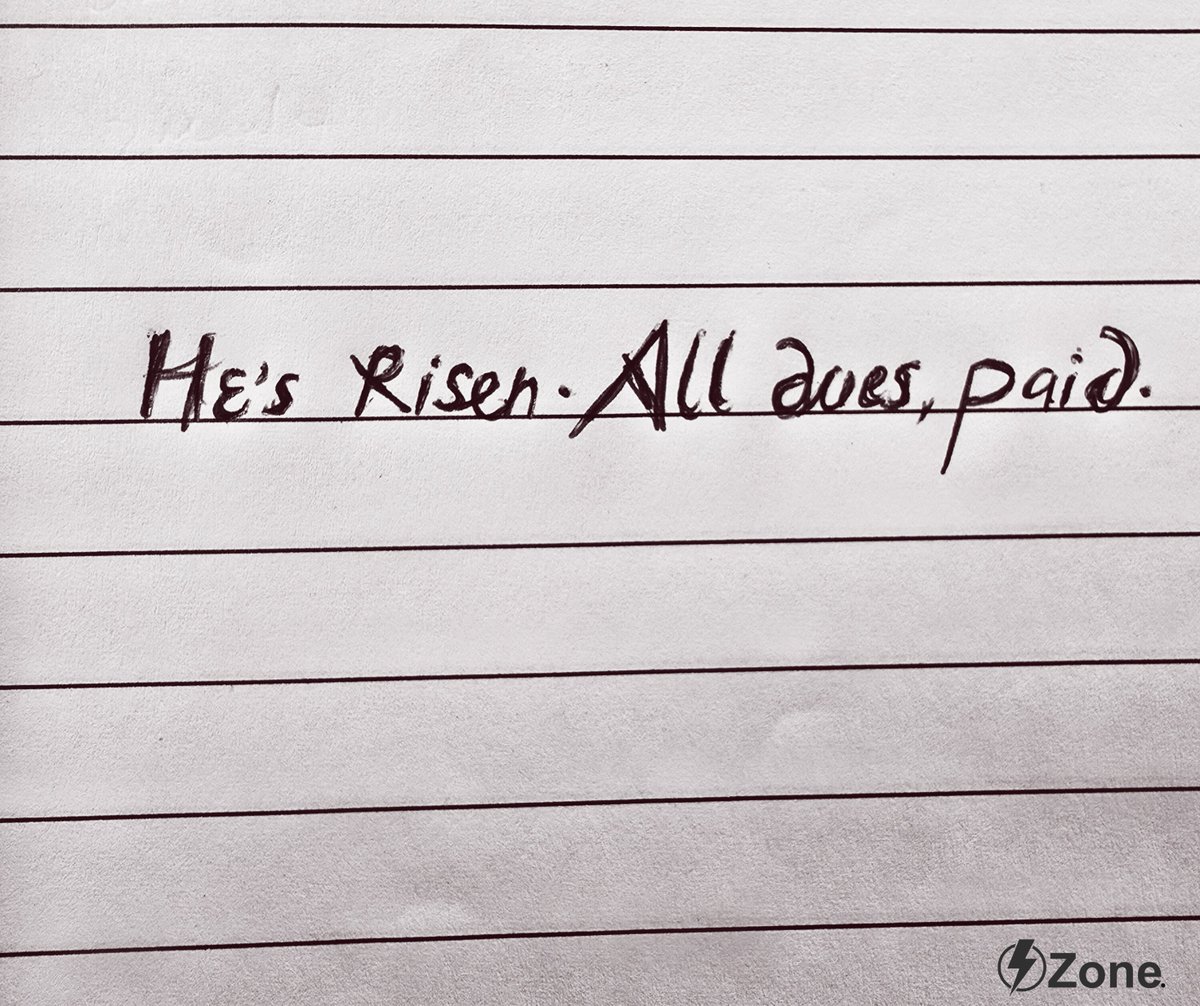 He's Risen. All dues, paid.
Zone.